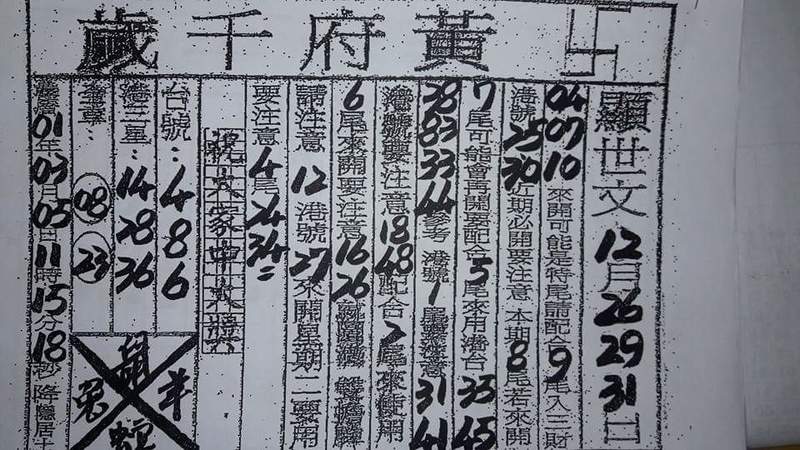 卍黃府千歲
顯世文12月26 29 31日
04 07 10來開可能是特尾請配合9尾入三財
港號25 30近期必開要注意 本期8尾若來開
7尾可能會再開要配合5尾來用港台35 45
38 83 33 44參考 港號1尾 注意31 41
港號要注意18 48配合2尾來使用
6尾來開要注意16 26就開
注意12港號27來開星期二要用
要注意4尾24 34=
祝大家中大獎
台號:4 8 6
港三星:14 28 36
08 23
農曆01年03月05日11時15分18秒降隱居士
鼠
兔 羊
蛇